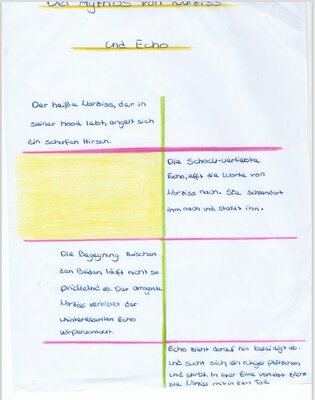 Der Mythos von Narziss
und Echo
Der heiße Narziss, der in
seiner hood lebt, angelt sich
ein scharfen Hirsch.
Die Schock-verliebte
Echo, äfft die Worte von
Narziss nach. Sie schlendert
ihm nach und stalkt ihn.
Die Begegnung zwischen
den Beiden läuft nicht so
prickelnd ab. Der arrogante
Narziss verbietet der
uninteressanten Echo
körperkontakt.
Echo zieht darauf hin beleidigt ab.
und sucht sich ein ruhiges plätzchen
und stirbt. In ihrer Ehre verletzt zieht
sie Narziss mit in den Tod.